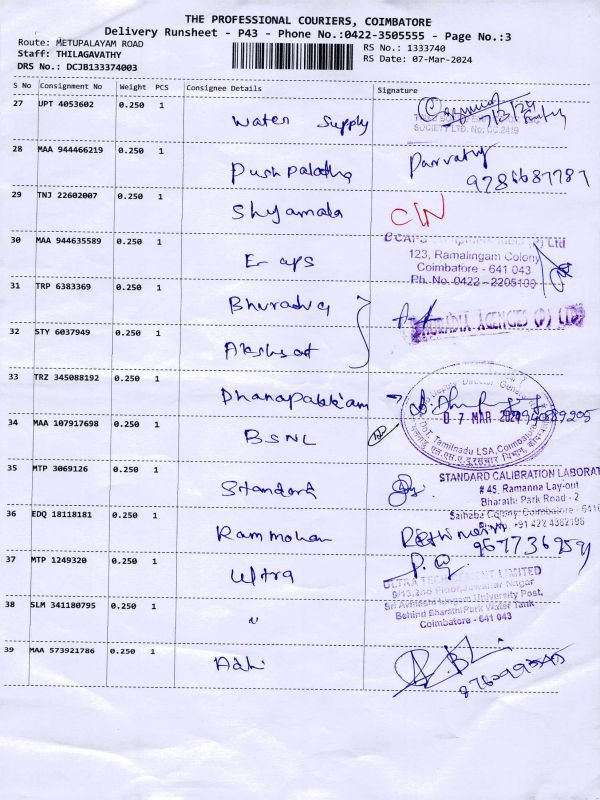 THE PROFESSIONAL COURIERS, COIMBATORE
Delivery Runsheet - P43 - Phone No.:0422-3505555 - Page No.:3
Route: METUPALAYAM ROAD
RS No.: 1333740
Staff: THILAGAVATHY
RS Date: 07-Mar-2024
DRS No.: DCJB133374003
S No Consignment No Weight PCS Consignee Details Signature
27 UPT 4053602 0.250 1 Water Supply
SOCIETY LTD. No. CC.2419
28 MAA 944466219 0.250 1 Pushpalatha Parvathy
9786687787
29 TNJ 22602007 0.250 1 Shyamala C/N
30 MAA 944635589 0.250 1 Er aps
123, Ramalingam Colony
Coimbatore - 641 043
Ph. No. 0422 - 2205100
31 TRP 6383369 0.250 1
AGENCIES (P) LTD
32 STY 6037949 0.250 1 Akshat
33 TRZ 345088192 0.250 1 Dhanapalakiam
07 MAR 2024
DoT, Tamilnadu LSA, Coimbatore
34 MAA 107917698 0.250 1 BSNL
35 MTP 3069126 0.250 1 Standard
STANDARD CALIBRATION LABORAT
# 45, Ramanna Lay-out
Bharathi Park Road - 2
Saibaba Colony, Coimbatore - 641
+91 422 4382198
36 EDQ 18118181 0.250 1 Ram mohan
37 MTP 1249320 0.250 1 Ultra
ULTRA TECH CEMENT LIMITED
9/13, 2nd Floor, Jawahar Nagar
Behind Bharathi Park Water Tank
Coimbatore - 641 043
38 SLM 341180795 0.250 1 "
39 MAA 573921786 0.250 1 Adhi